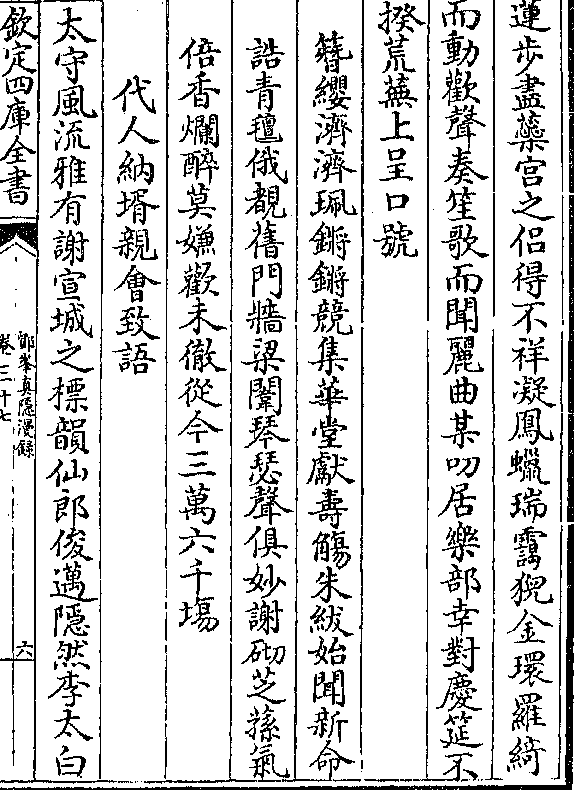 蓮步盡蘂宫之侣得不祥凝鳳蠟瑞靄猊金環羅綺
而動歡聲奏笙歌而聞麗曲某叨居樂部幸對慶筵不
揆荒蕪上呈口號
簪纓濟濟珮鏘鏘競集華堂獻壽觴朱紱始聞新命
誥青氊俄覩舊門牆梁闈琴瑟聲俱妙謝砌芝蓀氣
倍香爛醉莫嫌歡未徹從今三萬六千塲
代人納壻親會致語
太守風流雅有謝宣城之標韻仙郎俊邁隱然李太白
欽定四庫全書
鄮峯真隱漫録
卷三十七
六